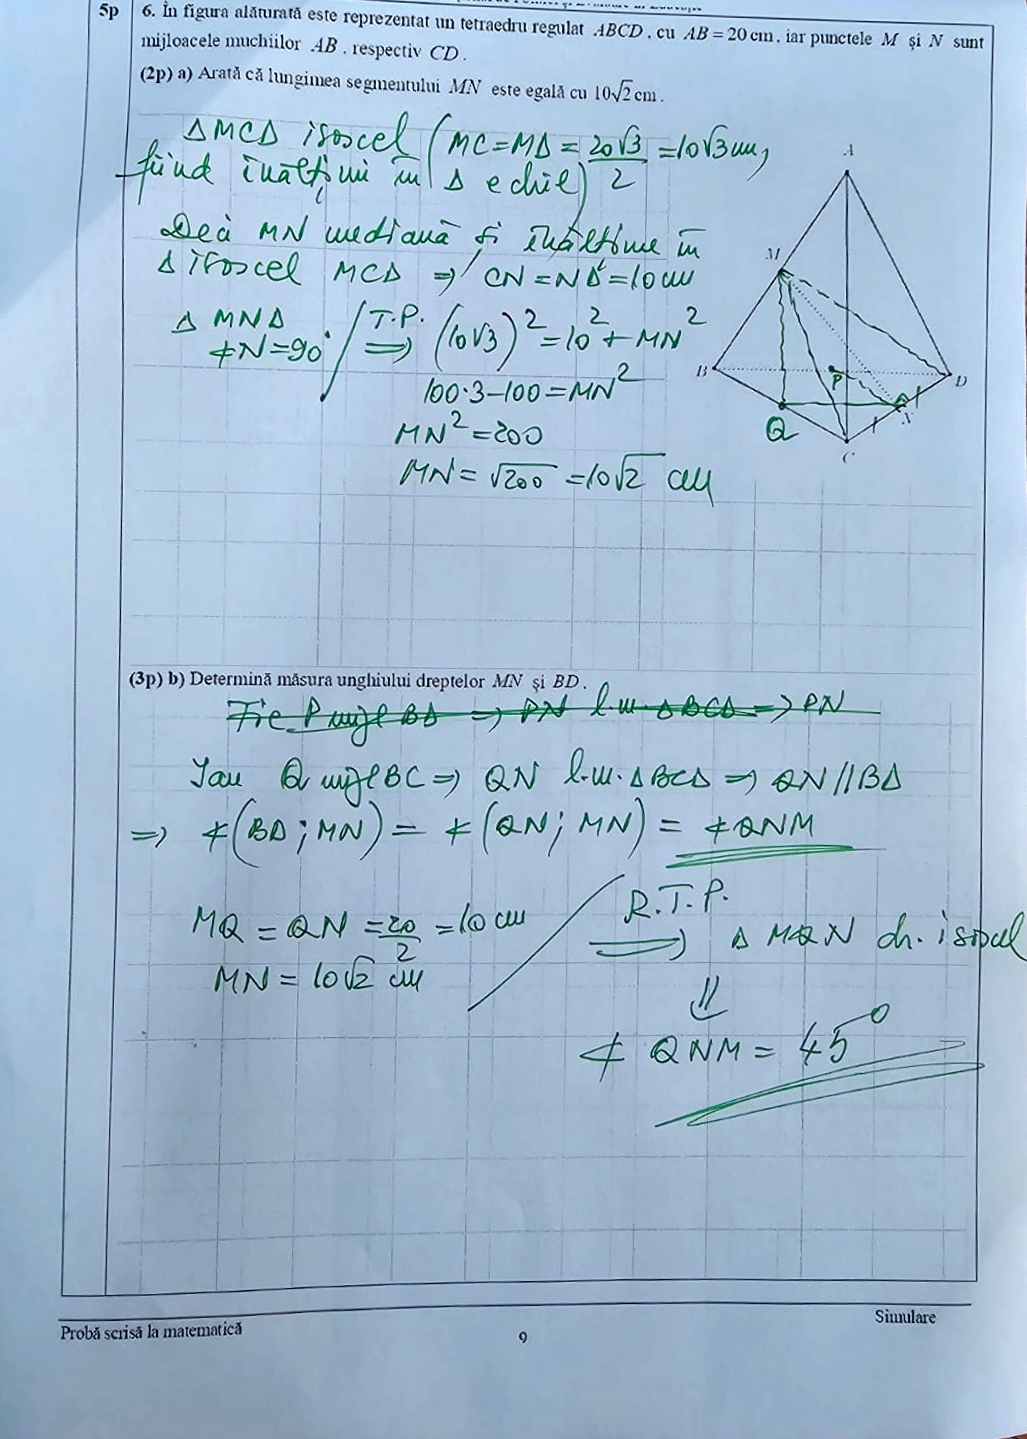 5p
6. În figura alăturată este reprezentat un tetraedru regulat ABCD, cu AB = 20 cm, iar punctele M și N sunt
mijloacele muchiilor AB, respectiv CD.
(2p) a) Arată că lungimea segmentului MN este egală cu 10√2 cm.
Δ MCΔ isoscel (MC=MΔ = 20√3/2 = 10√3 cm,
fiind înălțimi în Δ echil)
Deci MN mediană și înălțime în
Δ isoscel MCΔ ⇒ CN = NΔ = 10 cm
Δ MNΔ
∢N=90° / T.P. ⇒ (10√3)² = 10² + MN²
100·3-100 = MN²
MN² = 200
MN = √200 = 10√2 cm
A
M
B
P
D
Q
N
C
(3p) b) Determină măsura unghiului dreptelor MN și BD.
Fie P mijl BΔ ⇒ PN l.m. ΔBCΔ ⇒ PN
Sau Q mijl BC ⇒ QN l.m. ΔBCΔ ⇒ QN//BΔ
⇒ ∢(BΔ; MN) = ∢(QN; MN) = ∢QNM
MQ = QN = 20/2 = 10 cm
MN = 10√2 cm
R.T.P. ⇒ Δ MQN dr. isoscel
⇓
∢ QNM = 45°
Probă scrisă la matematică
9
Simulare